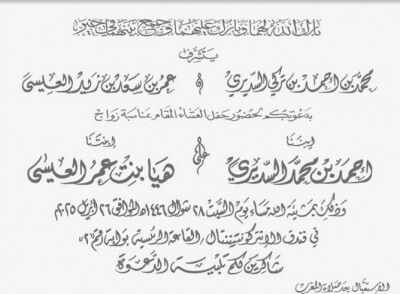 بارك الله لهما وبارك عليهما وجمع بينهما في خير
يتشرف
محمد بن احمد بن تركي السديري و عمر بن سعد بن زيد العليسى
بدعوتكم لحضور حفل العشاء المقام بمناسبة زواج
إبننا على إبنتنا
احمد بن محمد السديري هيا بنت عمر العليسى
وذلك بمشيئة الله مساء يوم السبت ٢٨ شوال ١٤٤٦هـ الموافق ٢٦ ابريل ٢٠٢٥م
في فندق الانتركونتيننتال "القاعة الرئيسية بوابة رقم ٢"
شاكرين لكم تلبية الدعوة
الاستقبال بعد صلاة المغرب